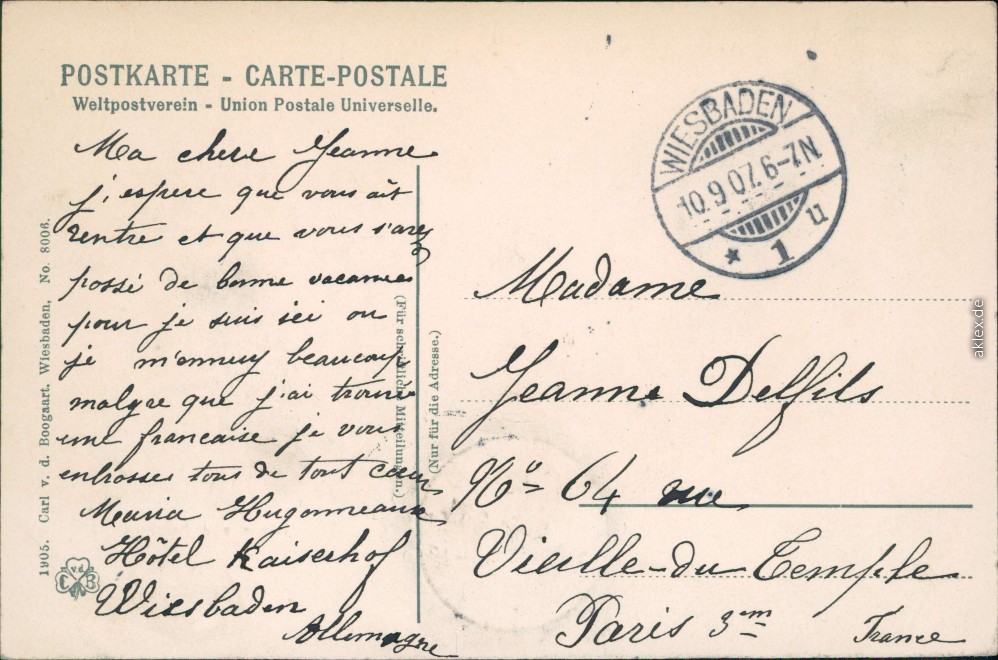 POSTKARTE - CARTE-POSTALE
Weltpostverein - Union Postale Universelle.
Ma chere Jeanne
j'espere que vous ait
rentre et que vous s'avez
possé de bonne vacances
pour je suis ici ou
je m'ennuy beaucoup
malgre que j'ai trouvé
une francaise je vous
enbrosses tous de tout cœur
Maria Hugonneaux
Hôtel Kaiserhof
Wiesbaden
Allemagne
1905. Carl v. d. Boogaart. Wiesbaden, No. 8006.
C v d B
(Für schriftliche Mitteilungen.)
(Nur für die Adresse.)
WIESBADEN
10.9.07. 6-7N.
* 1 u
Madame
Jeanne Delfils
No= 64 rue
Vieille-du-Temple
Paris 3em France
aklex.de